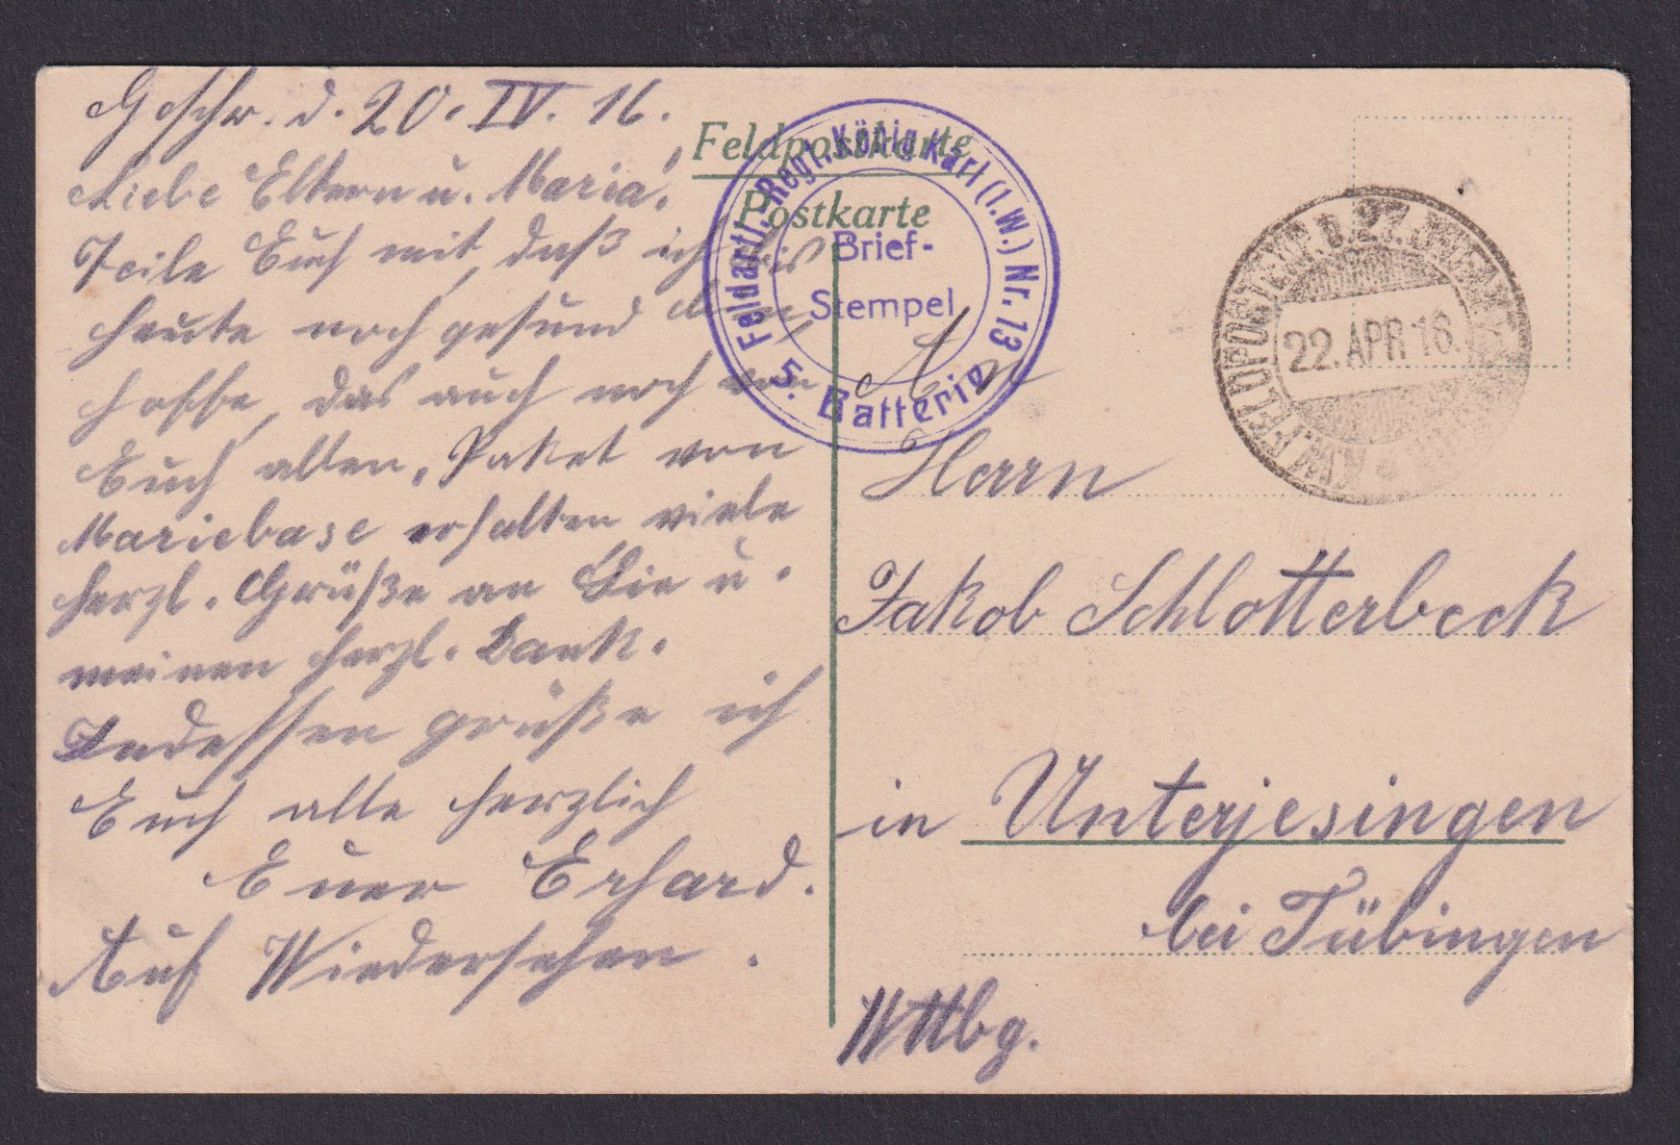 Geschr. d. 20. IV. 16.
Liebe Eltern u. Maria!
Teile Euch mit, daß ich bis
heute noch gesund bin
hoffe, das auch noch von
Euch allen. Paket von
Mariebase erhalten viele
herzl. Grüße an Sie u.
meinen herzl. Dank.
Indessen grüße ich
Euch alle herzlich
Euer Erhard.
Auf Wiedersehen.
Feldpostkarte
Postkarte
Feldartl.-Regt. König Karl (1.W.) Nr. 13
Brief-
Stempel
5. Batterie
K.W. FELDPOSTEXP. D. 27. INFANT
22. APR 16.
An
Herrn
Jakob Schlotterbeck
in Unterjesingen
bei Tübingen
Wttbg.